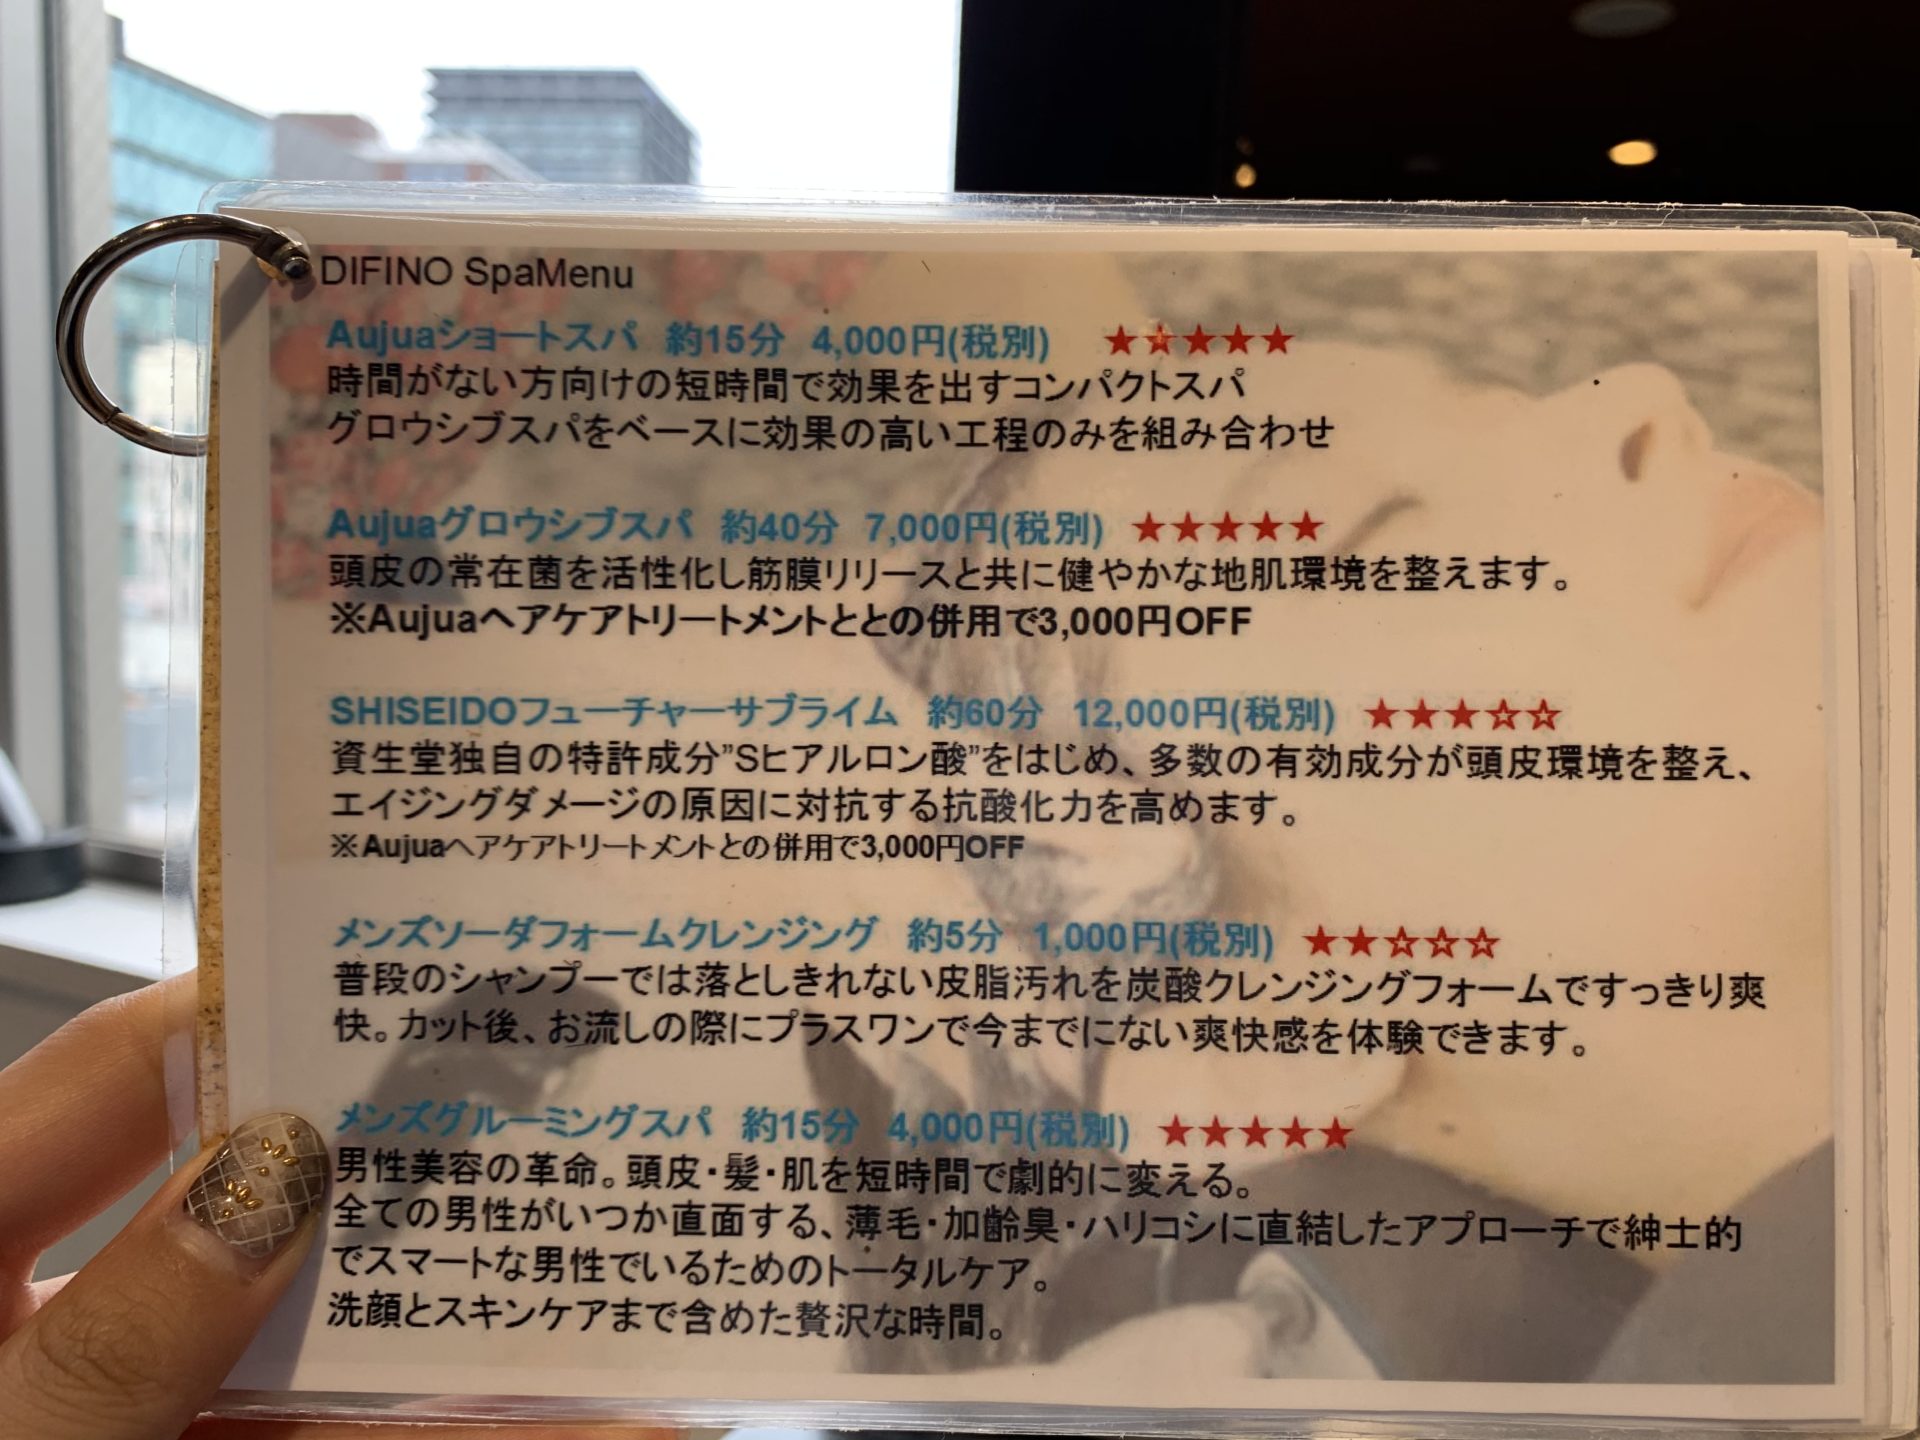 DIFINO SpaMenu
Aujuaショートスパ 約15分 4,000円(税別) ★★★★★
時間がない方向けの短時間で効果を出すコンパクトスパ
グロウシブスパをベースに効果の高い工程のみを組み合わせ
Aujuaグロウシブスパ 約40分 7,000円(税別) ★★★★★
頭皮の常在菌を活性化し筋膜リリースと共に健やかな地肌環境を整えます。
※Aujuaヘアケアトリートメントととの併用で3,000円OFF
SHISEIDOフューチャーサブライム 約60分 12,000円(税別) ★★★☆☆
資生堂独自の特許成分”Sヒアルロン酸”をはじめ、多数の有効成分が頭皮環境を整え、
エイジングダメージの原因に対抗する抗酸化力を高めます。
※Aujuaヘアケアトリートメントとの併用で3,000円OFF
メンズソーダフォームクレンジング 約5分 1,000円(税別) ★★☆☆☆
普段のシャンプーでは落としきれない皮脂汚れを炭酸クレンジングフォームですっきり爽
快。カット後、お流しの際にプラスワンで今までにない爽快感を体験できます。
メンズグルーミングスパ 約15分 4,000円(税別) ★★★★★
男性美容の革命。頭皮・髪・肌を短時間で劇的に変える。
全ての男性がいつか直面する、薄毛・加齢臭・ハリコシに直結したアプローチで紳士的
でスマートな男性でいるためのトータルケア。
洗顔とスキンケアまで含めた贅沢な時間。